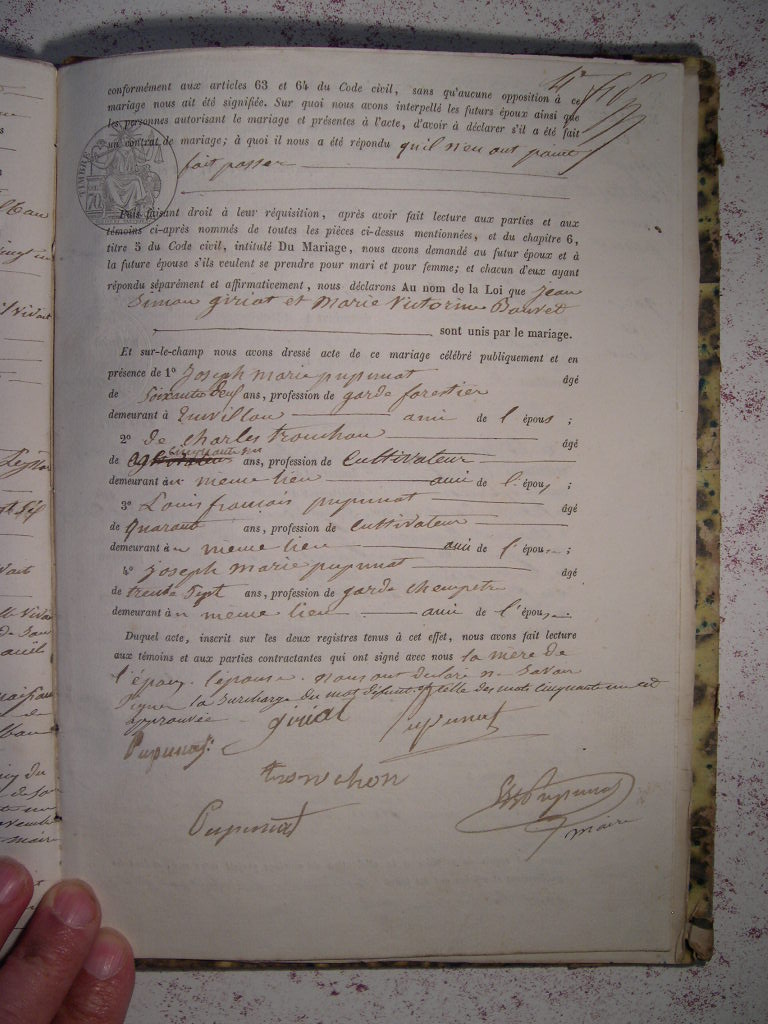 conformément aux articles 63 et 64 du Code civil, sans qu'aucune opposition à ce
mariage nous ait été signifiée. Sur quoi nous avons interpellé les futurs époux ainsi que
les personnes autorisant le mariage et présentes à l'acte, d'avoir à déclarer s'il a été fait
un contrat de mariage; à quoi il nous a été répondu qu'il n'en ont point
fait passer
TIMBRE
70
Puis faisant droit à leur réquisition, après avoir fait lecture aux parties et aux
témoins ci-après nommés de toutes les pièces ci-dessus mentionnées, et du chapitre 6,
titre 5 du Code civil, intitulé Du Mariage, nous avons demandé au futur époux et à
la future épouse s'ils veulent se prendre pour mari et pour femme; et chacun d'eux ayant
répondu séparément et affirmativement, nous déclarons Au nom de la Loi que jean
Simon giriat et Marie Victorine Bouvet
sont unis par le mariage.
Et sur-le-champ nous avons dressé acte de ce mariage célébré publiquement et en
présence de 1º Joseph Marie pupunat âgé
de Soixante neuf ans, profession de garde forestier
demeurant à Emvillou ami de l'époux ;
2º de Charles tronchon âgé
de cinquante un ans, profession de Cultivateur
demeurant au même lieu ami de l'époux ;
3º Louis francois pupunat âgé
de quarante ans, profession de Cultivateur
demeurant à même lieu ami de l'épouse ;
4º Joseph Marie pupunat âgé
de trente Sept ans, profession de garde champetre
demeurant à même lieu ami de l'épouse
Duquel acte, inscrit sur les deux registres tenus à cet effet, nous avons fait lecture
aux témoins et aux parties contractantes qui ont signé avec nous la mère de
l'époux, l'épouse nous ont déclaré ne Savoir
Signer la Surcharge du mot des mots cinquante un est
approuvée giriat pupunat
Pupunat
tronchon
Pupunat Pupunat
maire